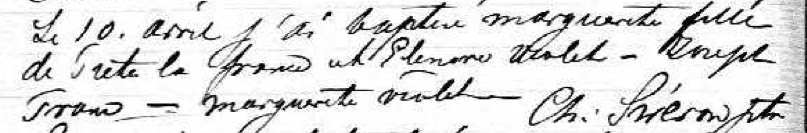 Le 10. avril j'ai baptisé marguerite fille
de la france et Elenore Violet - Joseph
Franc — marguerite violet — Ch: